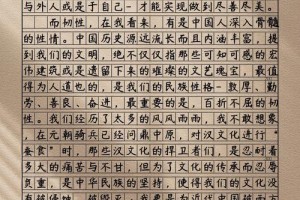 与外人或是于自己-才能实现做到尽善尽美。
而韧性，在我看来，有是中国人深入骨髓
的性情。中国历史源远流长而且内涵丰富，提
到我们的文明，绝不仅仅指那些可知可感的宏
伟建筑或是遗留下来的璀璨的文艺瑰宝，最值
得为人道也的，是我们的民族性格-敦厚、勤
劳、善良、奋进，最重要的是，百折不屈的韧
性。我们经历了太多的风风雨雨，我不敢想象
，在元朝骑兵已经问鼎中原，对汉文化进行"
蚕食"时，那些汉文化的捍卫者们，是忍耐着
多大的痛苦与不甘，但为了文化的传承而忍辱
负重，是中华民族的坚持，使得我们的文化没